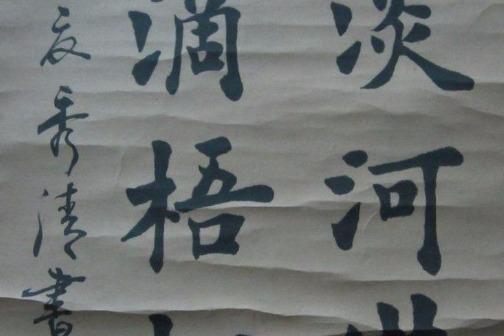 淡河
滴梧
秀清書